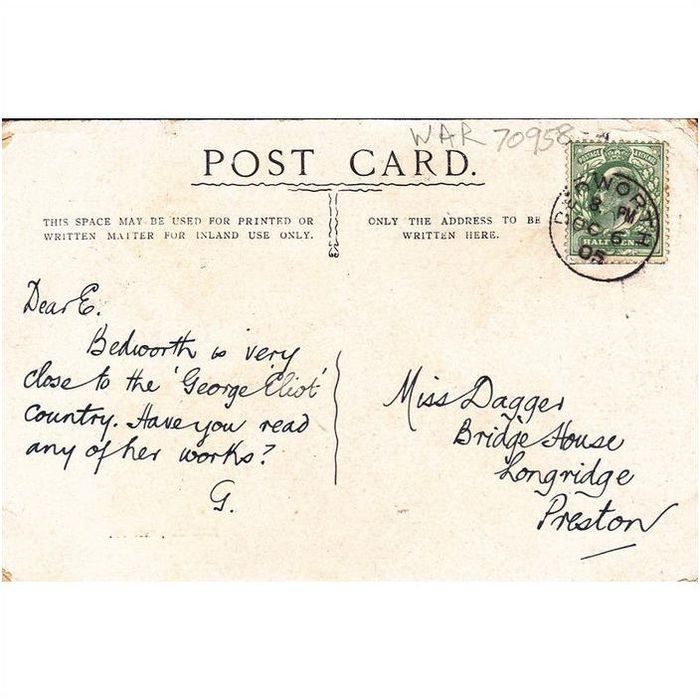 WAR 70958
POST CARD.
THIS SPACE MAY BE USED FOR PRINTED OR
WRITTEN MATTER FOR INLAND USE ONLY.
ONLY THE ADDRESS TO BE
WRITTEN HERE.
POSTAGE
HALF
WORTH
8 PM
OC 6
05
Dear E.
Bedworth is very
close to the 'George Eliot'
Country. Have you read
any of her works?
G.
Miss Dagger
Bridge House
Longridge
Preston